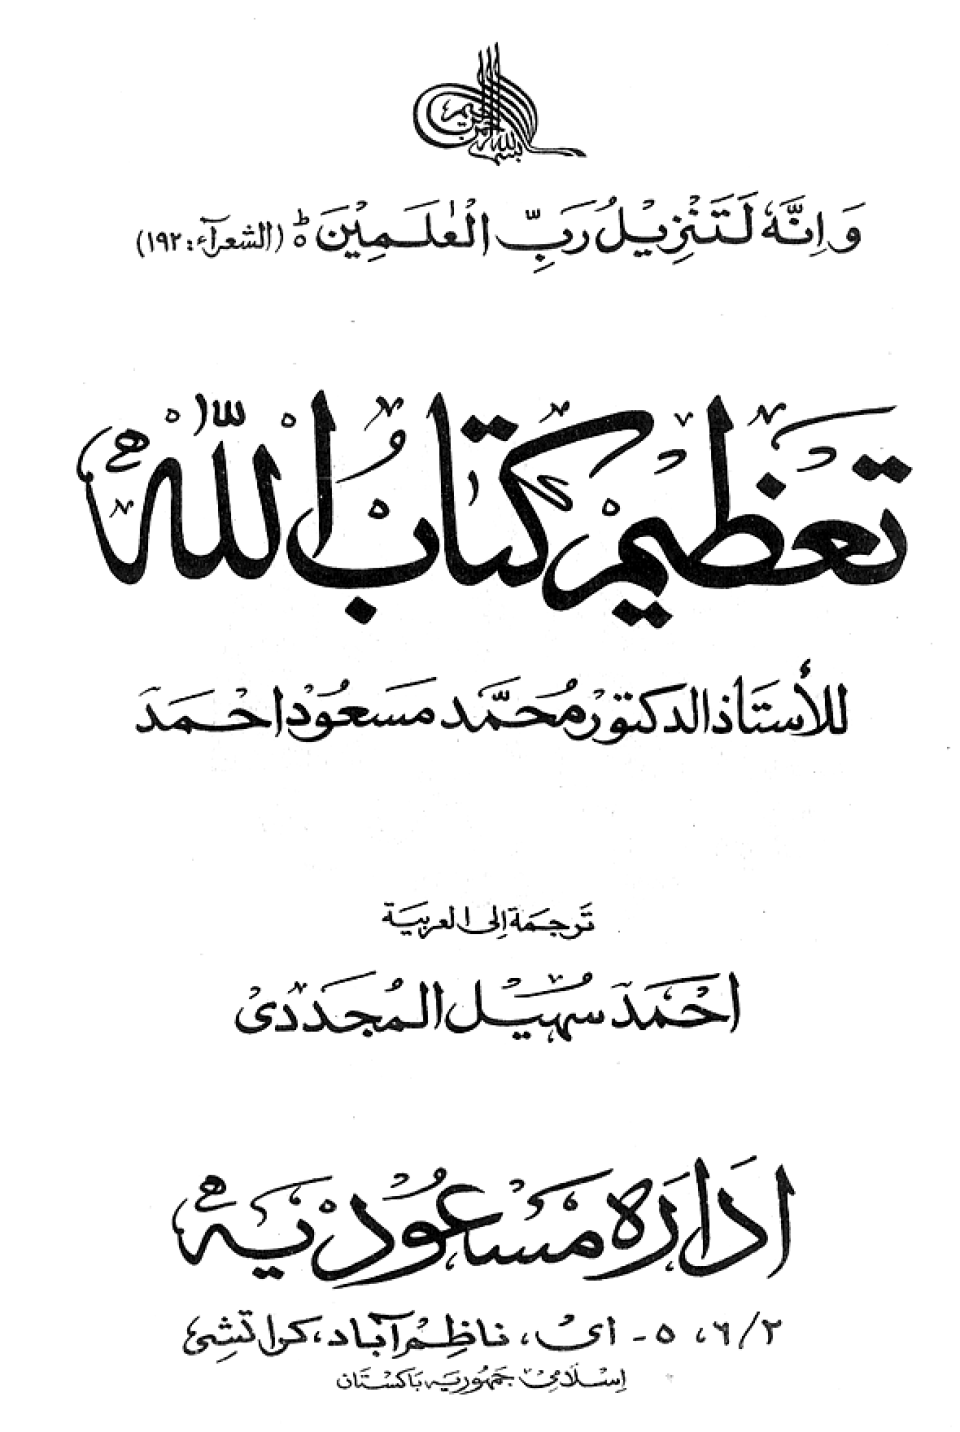 بسم الله الرحمن الرحيم
وَاِنَّهٗ لَتَنْزِيْلُ رَبِّ الْعٰلَمِيْنَ ؕ (الشعرآء: ١٩٢)
تعظيم كتاب الله
للأستاذ الدكتور محمّد مسعود احمد
ترجمة الى العربية
احمد سهيل المجددى
ادارۀ مسعوديه
٦/٢، ٥ - اى، ناظم آباد، كراتشى
اسلامى جمهوريه باكستان